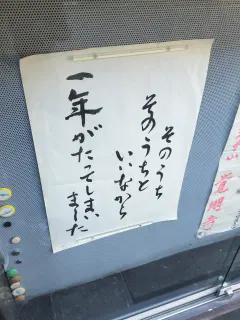 そのうち
そのうちと
いいながら
一年がたってしまい
ました
覚明寺